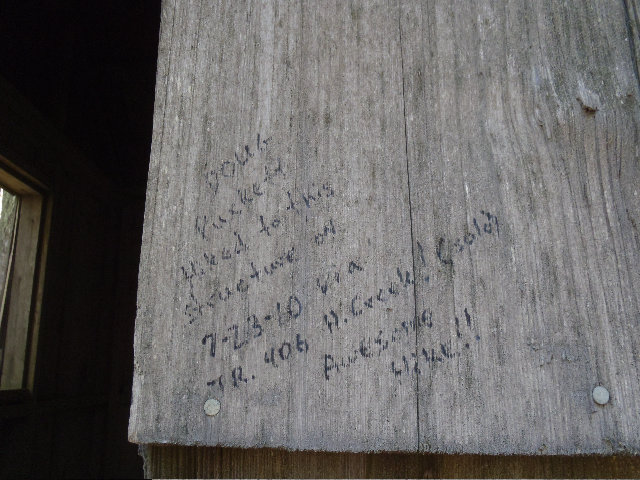 DOUG
Puckett
Hiked to this
structure on
7-23-10 via
TR. 406 H. Creek! (solo)
Awesome
Hike!!